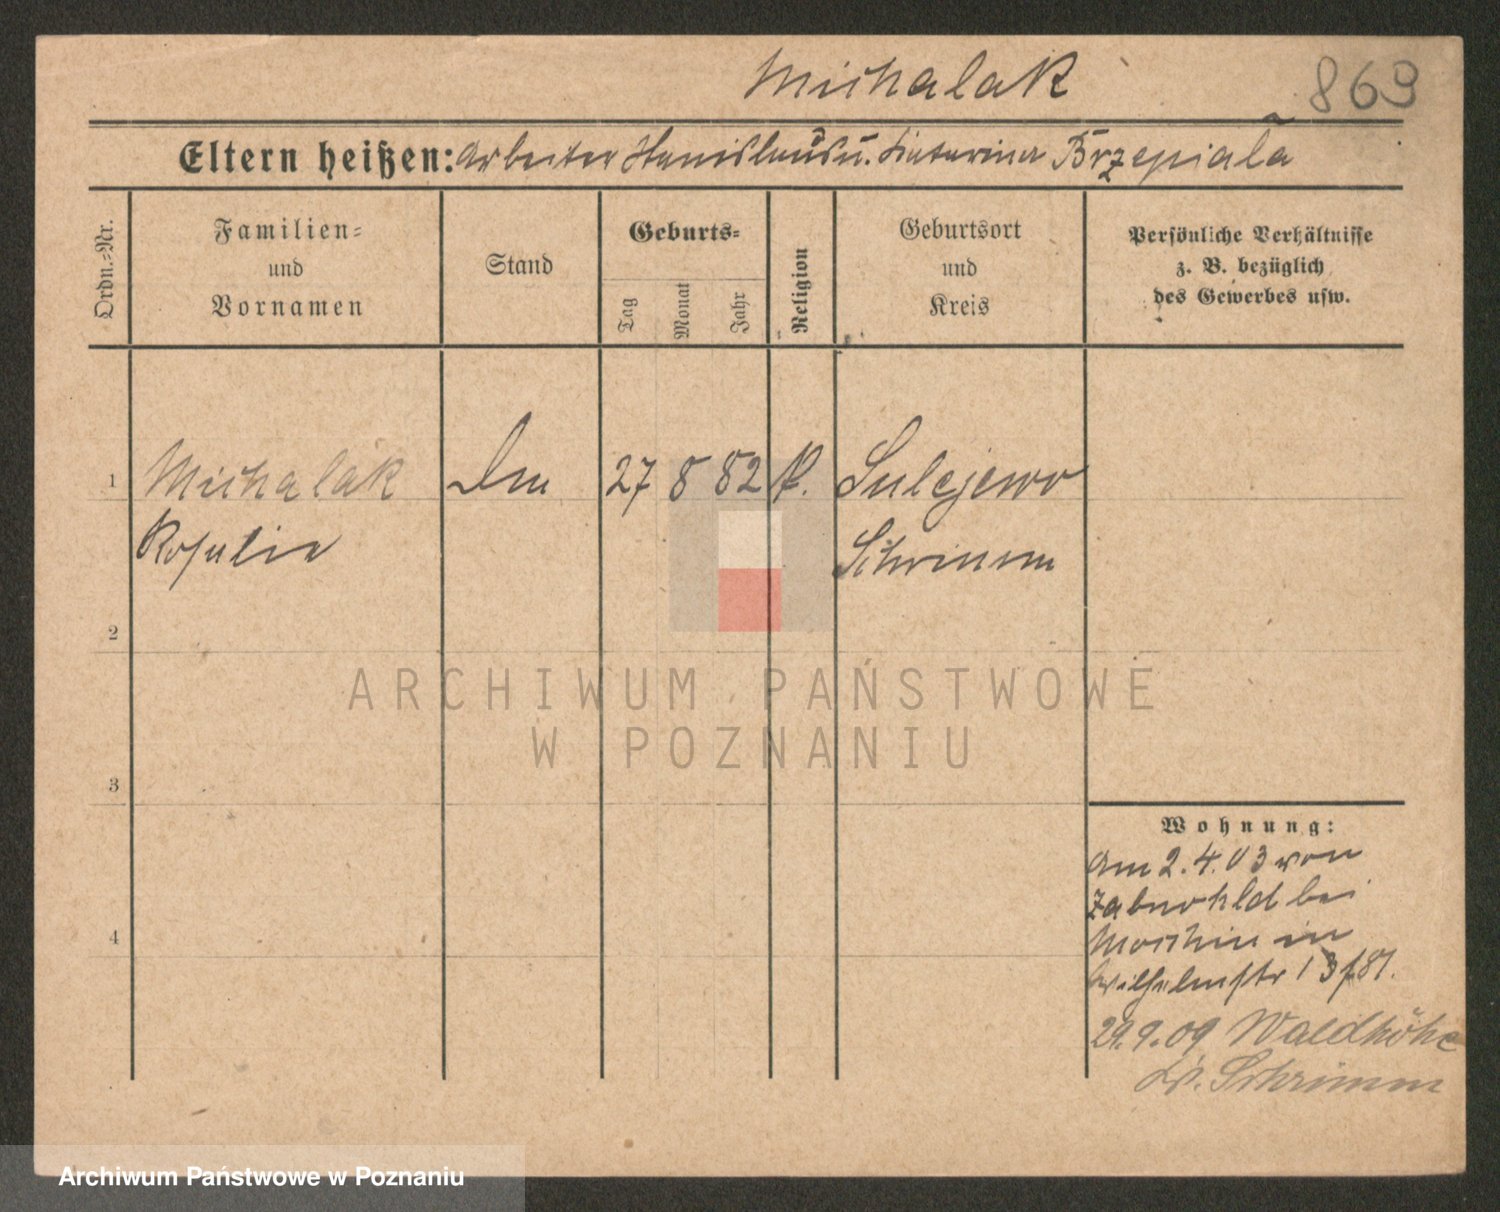 Michalak
869
Eltern heißen: Arbeiter Stanislaus u. Katarina Brzepiala
Ordn.-Nr.
Familien-
und
Vornamen
Stand
Geburts-
Tag
Monat
Jahr
Religion
Geburtsort
und
Kreis
Persönliche Verhältnisse
z. B. bezüglich
des Gewerbes usw.
1
Michalak
27 8 82 k. Sulejewo
Rosalie
Schrimm
2
ARCHIWUM PAŃSTWOWE
W POZNANIU
3
Wohnung:
Am 2.4.03 von
bei
Moschin in
Wilhelmstr 13
4
29.9.09 Waldhöhe
Kr. Schrimm
Archiwum Państwowe w Poznaniu